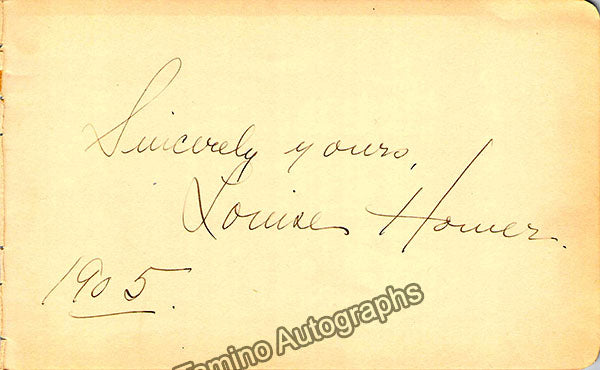 Sincerely yours,
Louise Homer.
1905.
Tamino Autographs